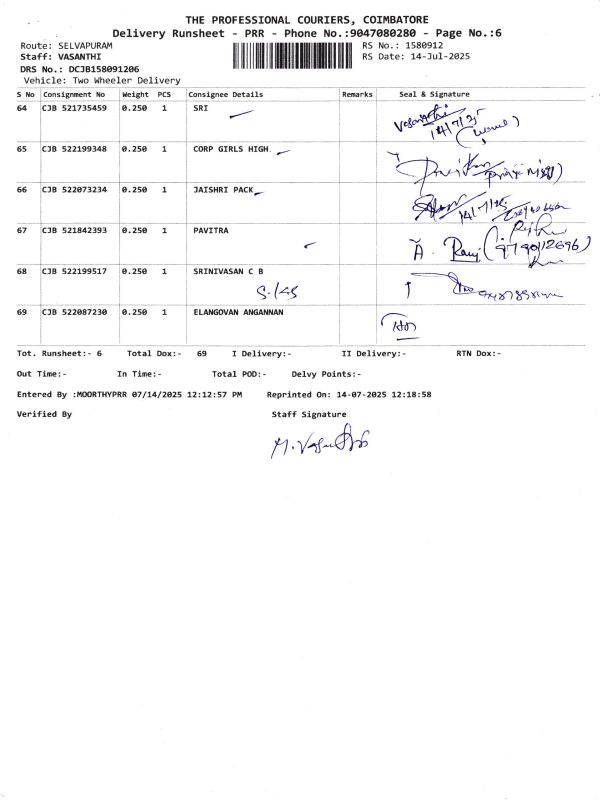 THE PROFESSIONAL COURIERS, COIMBATORE
Delivery Runsheet - PRR - Phone No.:9047080280 - Page No.:6
Route: SELVAPURAM RS No.: 1580912
Staff: VASANTHI RS Date: 14-Jul-2025
DRS No.: DCJB158091206
Vehicle: Two Wheeler Delivery
S No Consignment No Weight PCS Consignee Details Remarks Seal & Signature
64 CJB 521735459 0.250 1 SRI
14/7/25
65 CJB 522199348 0.250 1 CORP GIRLS HIGH
66 CJB 522073234 0.250 1 JAISHRI PACK
14/7/25
67 CJB 521842393 0.250 1 PAVITRA
A. Ravi (9790112696)
68 CJB 522199517 0.250 1 SRINIVASAN C B
69 CJB 522087230 0.250 1 ELANGOVAN ANGANNAN
Tot. Runsheet:- 6 Total Dox:- 69 I Delivery:- II Delivery:- RTN Dox:-
Out Time:- In Time:- Total POD:- Delvy Points:-
Entered By :MOORTHYPRR 07/14/2025 12:12:57 PM Reprinted On: 14-07-2025 12:18:58
Verified By Staff Signature